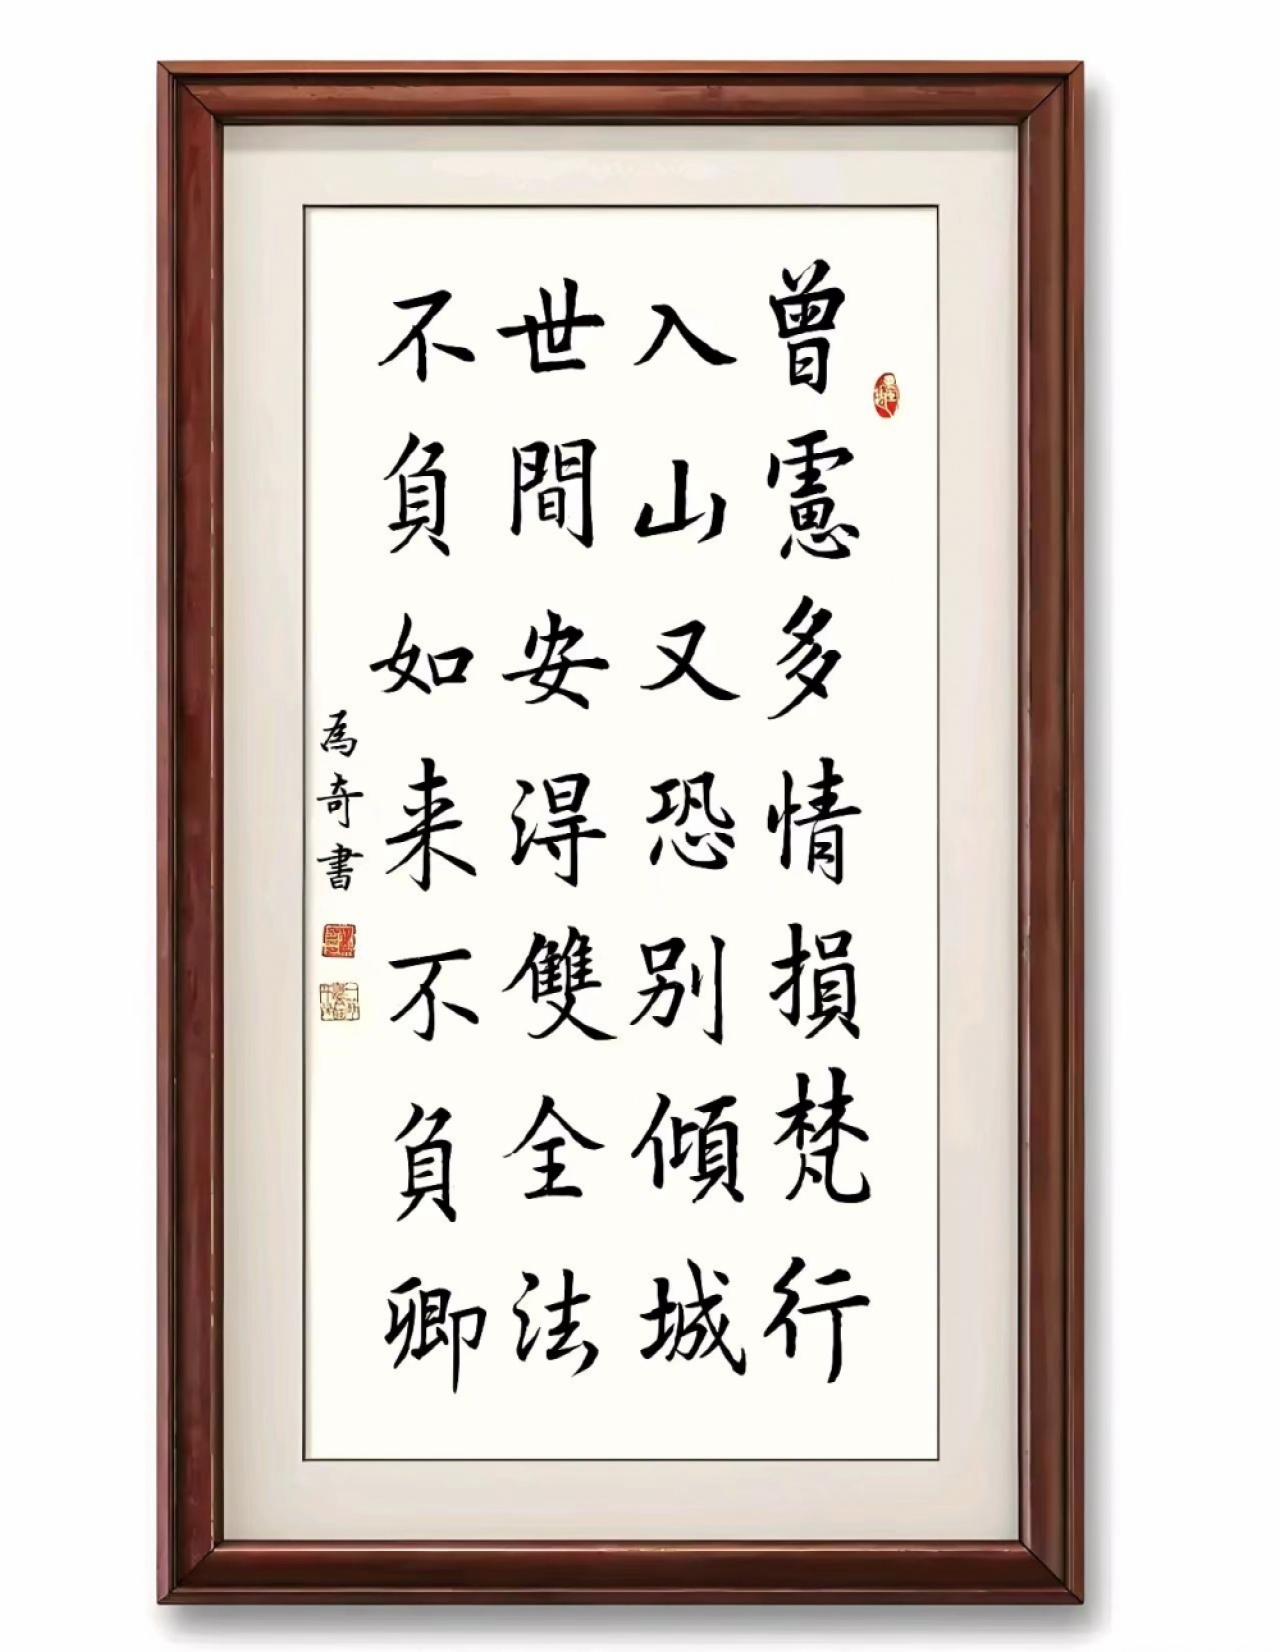 曾慮多情損梵行
入山又恐别傾城
世間安得雙全法
不負如来不負卿
為奇書